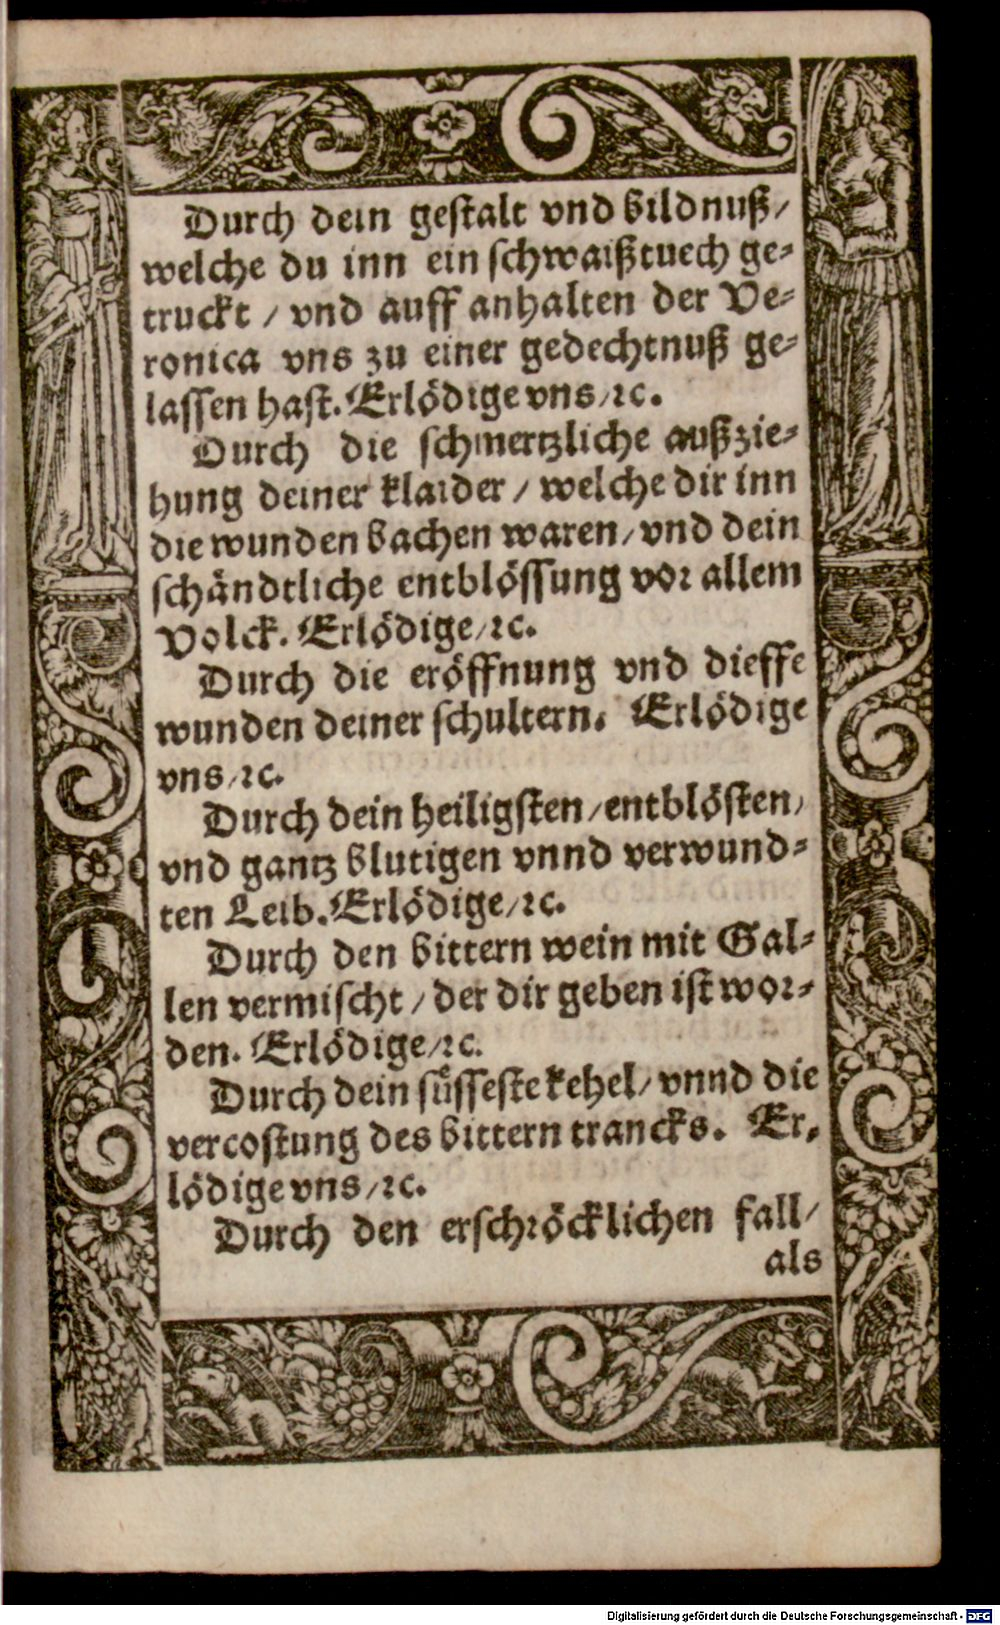 Durch dein gestalt vnd bildnuß/
welche du inn ein schwaißtuech ge-
truckt / vnd auff anhalten der Ve-
ronica vns zu einer gedechtnuß ge-
lassen hast. Erlödige vns/ ꝛc.
Durch die schmertzliche außzie-
hung deiner klaider / welche dir inn
die wunden bachen waren/ vnd dein
schändtliche entblössung vor allem
Volck. Erlödige/ ꝛc.
Durch die eröffnung vnd dieffe
wunden deiner schultern. Erlödige
vns/ ꝛc.
Durch dein heiligsten/ entblösten/
vnd gantz blutigen vnnd verwund-
ten Leib. Erlödige/ ꝛc.
Durch den bittern wein mit Gal-
len vermischt / der dir geben ist wor-
den. Erlödige/ ꝛc.
Durch dein süsseste kehel/ vnnd die
vercostung des bittern trancks. Er-
lödige vns/ ꝛc.
Durch den erschröcklichen fall/
als
Digitalisierung gefördert durch die Deutsche Forschungsgemeinschaft - DFG